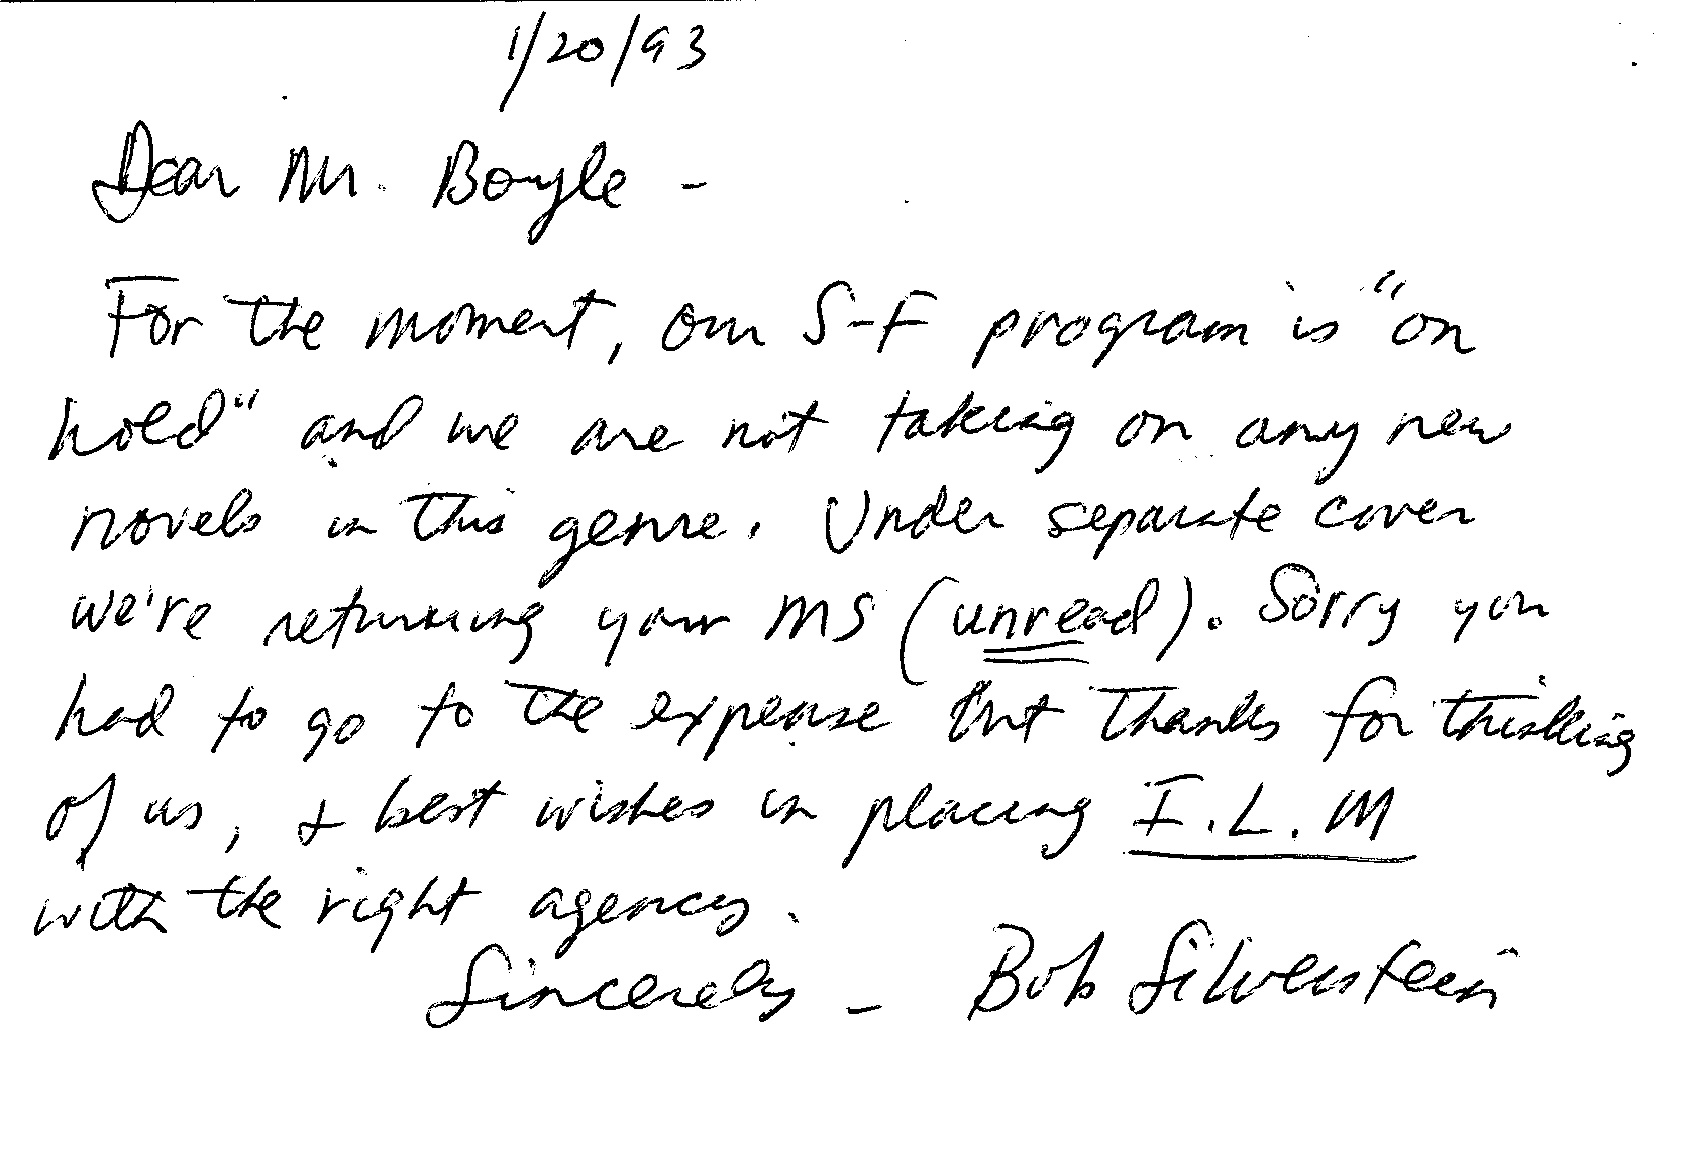 1/20/93
Dear Mr. Boyle -
For the moment, our S-F program is "on
hold" and we are not taking on any new
novels in this genre. Under separate cover
we're returning your MS (unread). Sorry you
had to go to the expense but thanks for thinking
of us, & best wishes in placing I.L.M
with the right agency.
Sincerely - Bob Silverstein